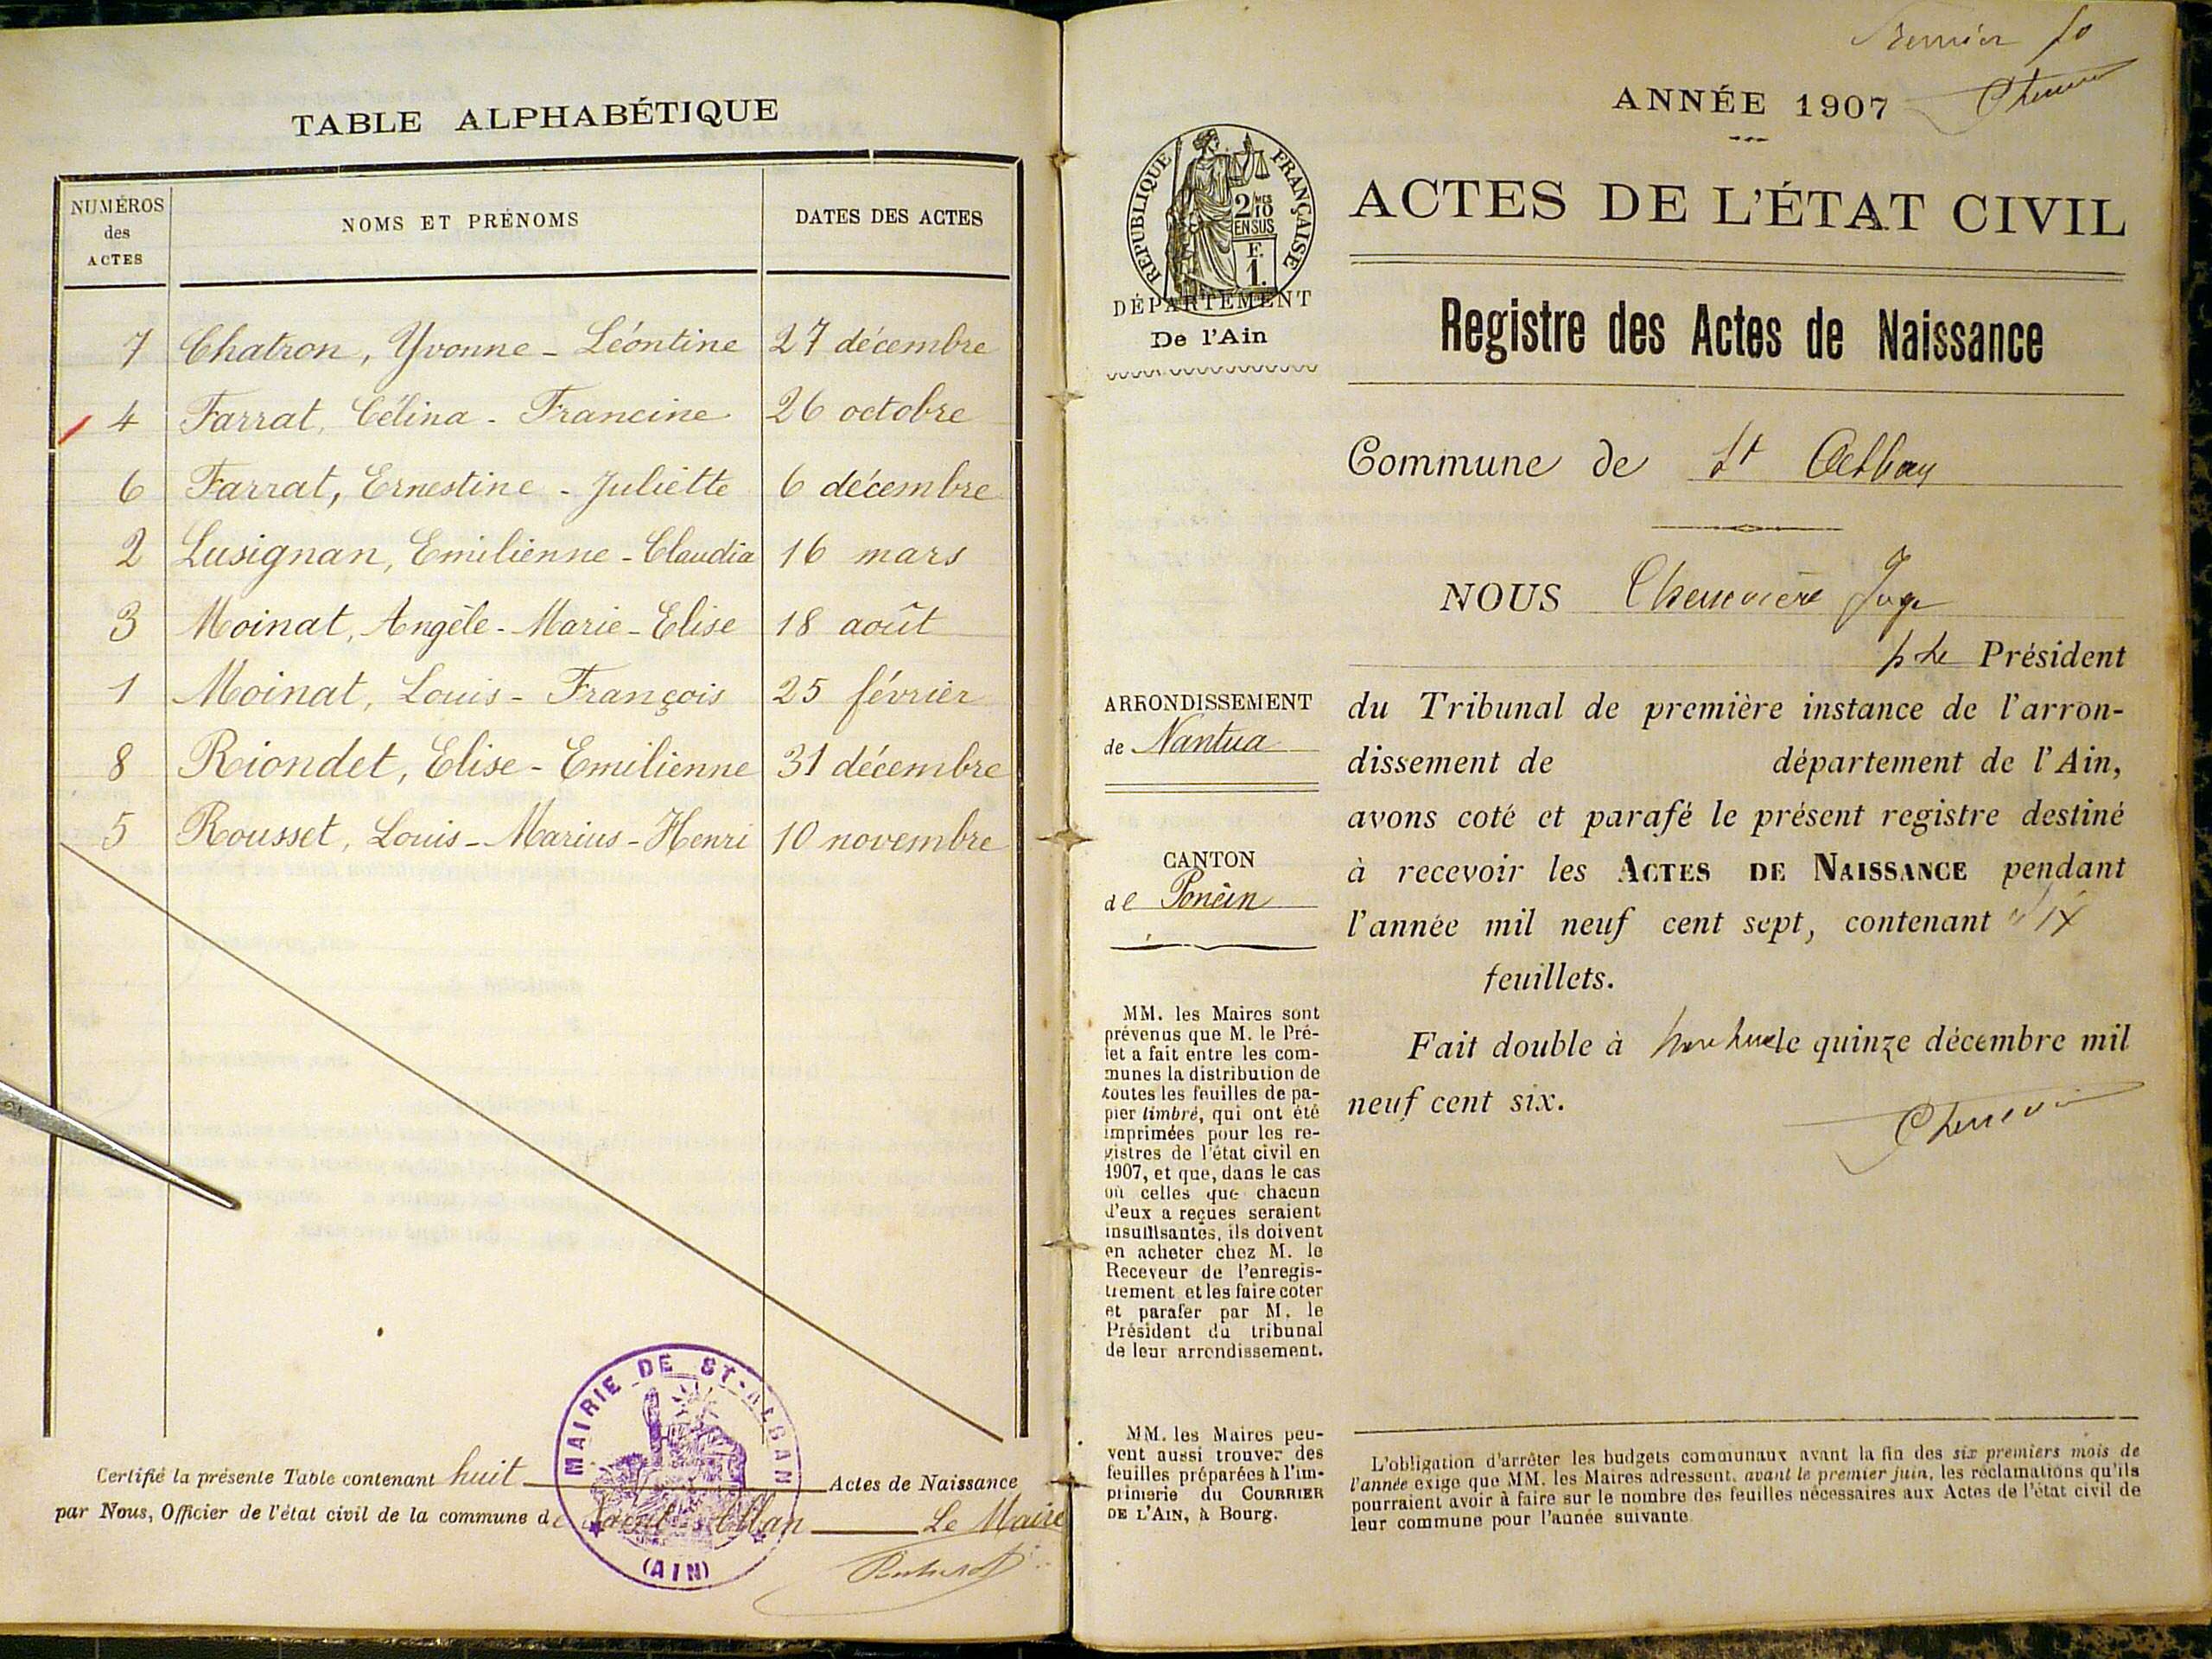 TABLE ALPHABÉTIQUE
NUMÉROS des ACTES
NOMS ET PRÉNOMS
DATES DES ACTES
7 Chatron, Yvonne - Léontine 27 décembre
4 Farrat, Célina - Francine 26 octobre
6 Farrat, Ernestine - Juliette 6 décembre
2 Lusignan, Emilienne - Claudia 16 mars
3 Moinat, Angèle - Marie - Elise 18 août
1 Moinat, Louis - François 25 février
8 Riondet, Elise - Emilienne 31 décembre
5 Rousset, Louis - Marius - Henri 10 novembre
MAIRIE DE ST-ALBAN
(AIN)
Certifié la présente Table contenant huit Actes de Naissance
par Nous, Officier de l'état civil de la commune de Saint-Alban Le Maire
ANNÉE 1907
RÉPUBLIQUE FRANÇAISE
2 MES 10 EN SUS
F. 1.
ACTES DE L'ÉTAT CIVIL
DÉPARTEMENT
De l'Ain
Registre des Actes de Naissance
Commune de St Alban
NOUS Chenevière Juge
Président
du Tribunal de première instance de l'arron-
dissement de département de l'Ain,
avons coté et parafé le présent registre destiné
à recevoir les ACTES DE NAISSANCE pendant
l'année mil neuf cent sept, contenant dix
feuillets.
Fait double à le quinze décembre mil
neuf cent six.
ARRONDISSEMENT
de Nantua
CANTON
de Poncin
MM. les Maires sont
prévenus que M. le Pré-
fet a fait entre les com-
munes la distribution de
toutes les feuilles de pa-
pier timbré, qui ont été
imprimées pour les re-
gistres de l'état civil en
1907, et que, dans le cas
où celles que chacun
d'eux a reçues seraient
insuffisantes, ils doivent
en acheter chez M. le
Receveur de l'enregis-
trement et les faire coter
et parafer par M. le
Président du tribunal
de leur arrondissement.
MM. les Maires peu-
vent aussi trouver des
feuilles préparées à l'im-
primerie du COURRIER
DE L'AIN, à Bourg.
L'obligation d'arrêter les budgets communaux avant la fin des six premiers mois de
l'année exige que MM. les Maires adressent, avant le premier juin, les réclamations qu'ils
pourraient avoir à faire sur le nombre des feuilles nécessaires aux Actes de l'état civil de
leur commune pour l'année suivante.